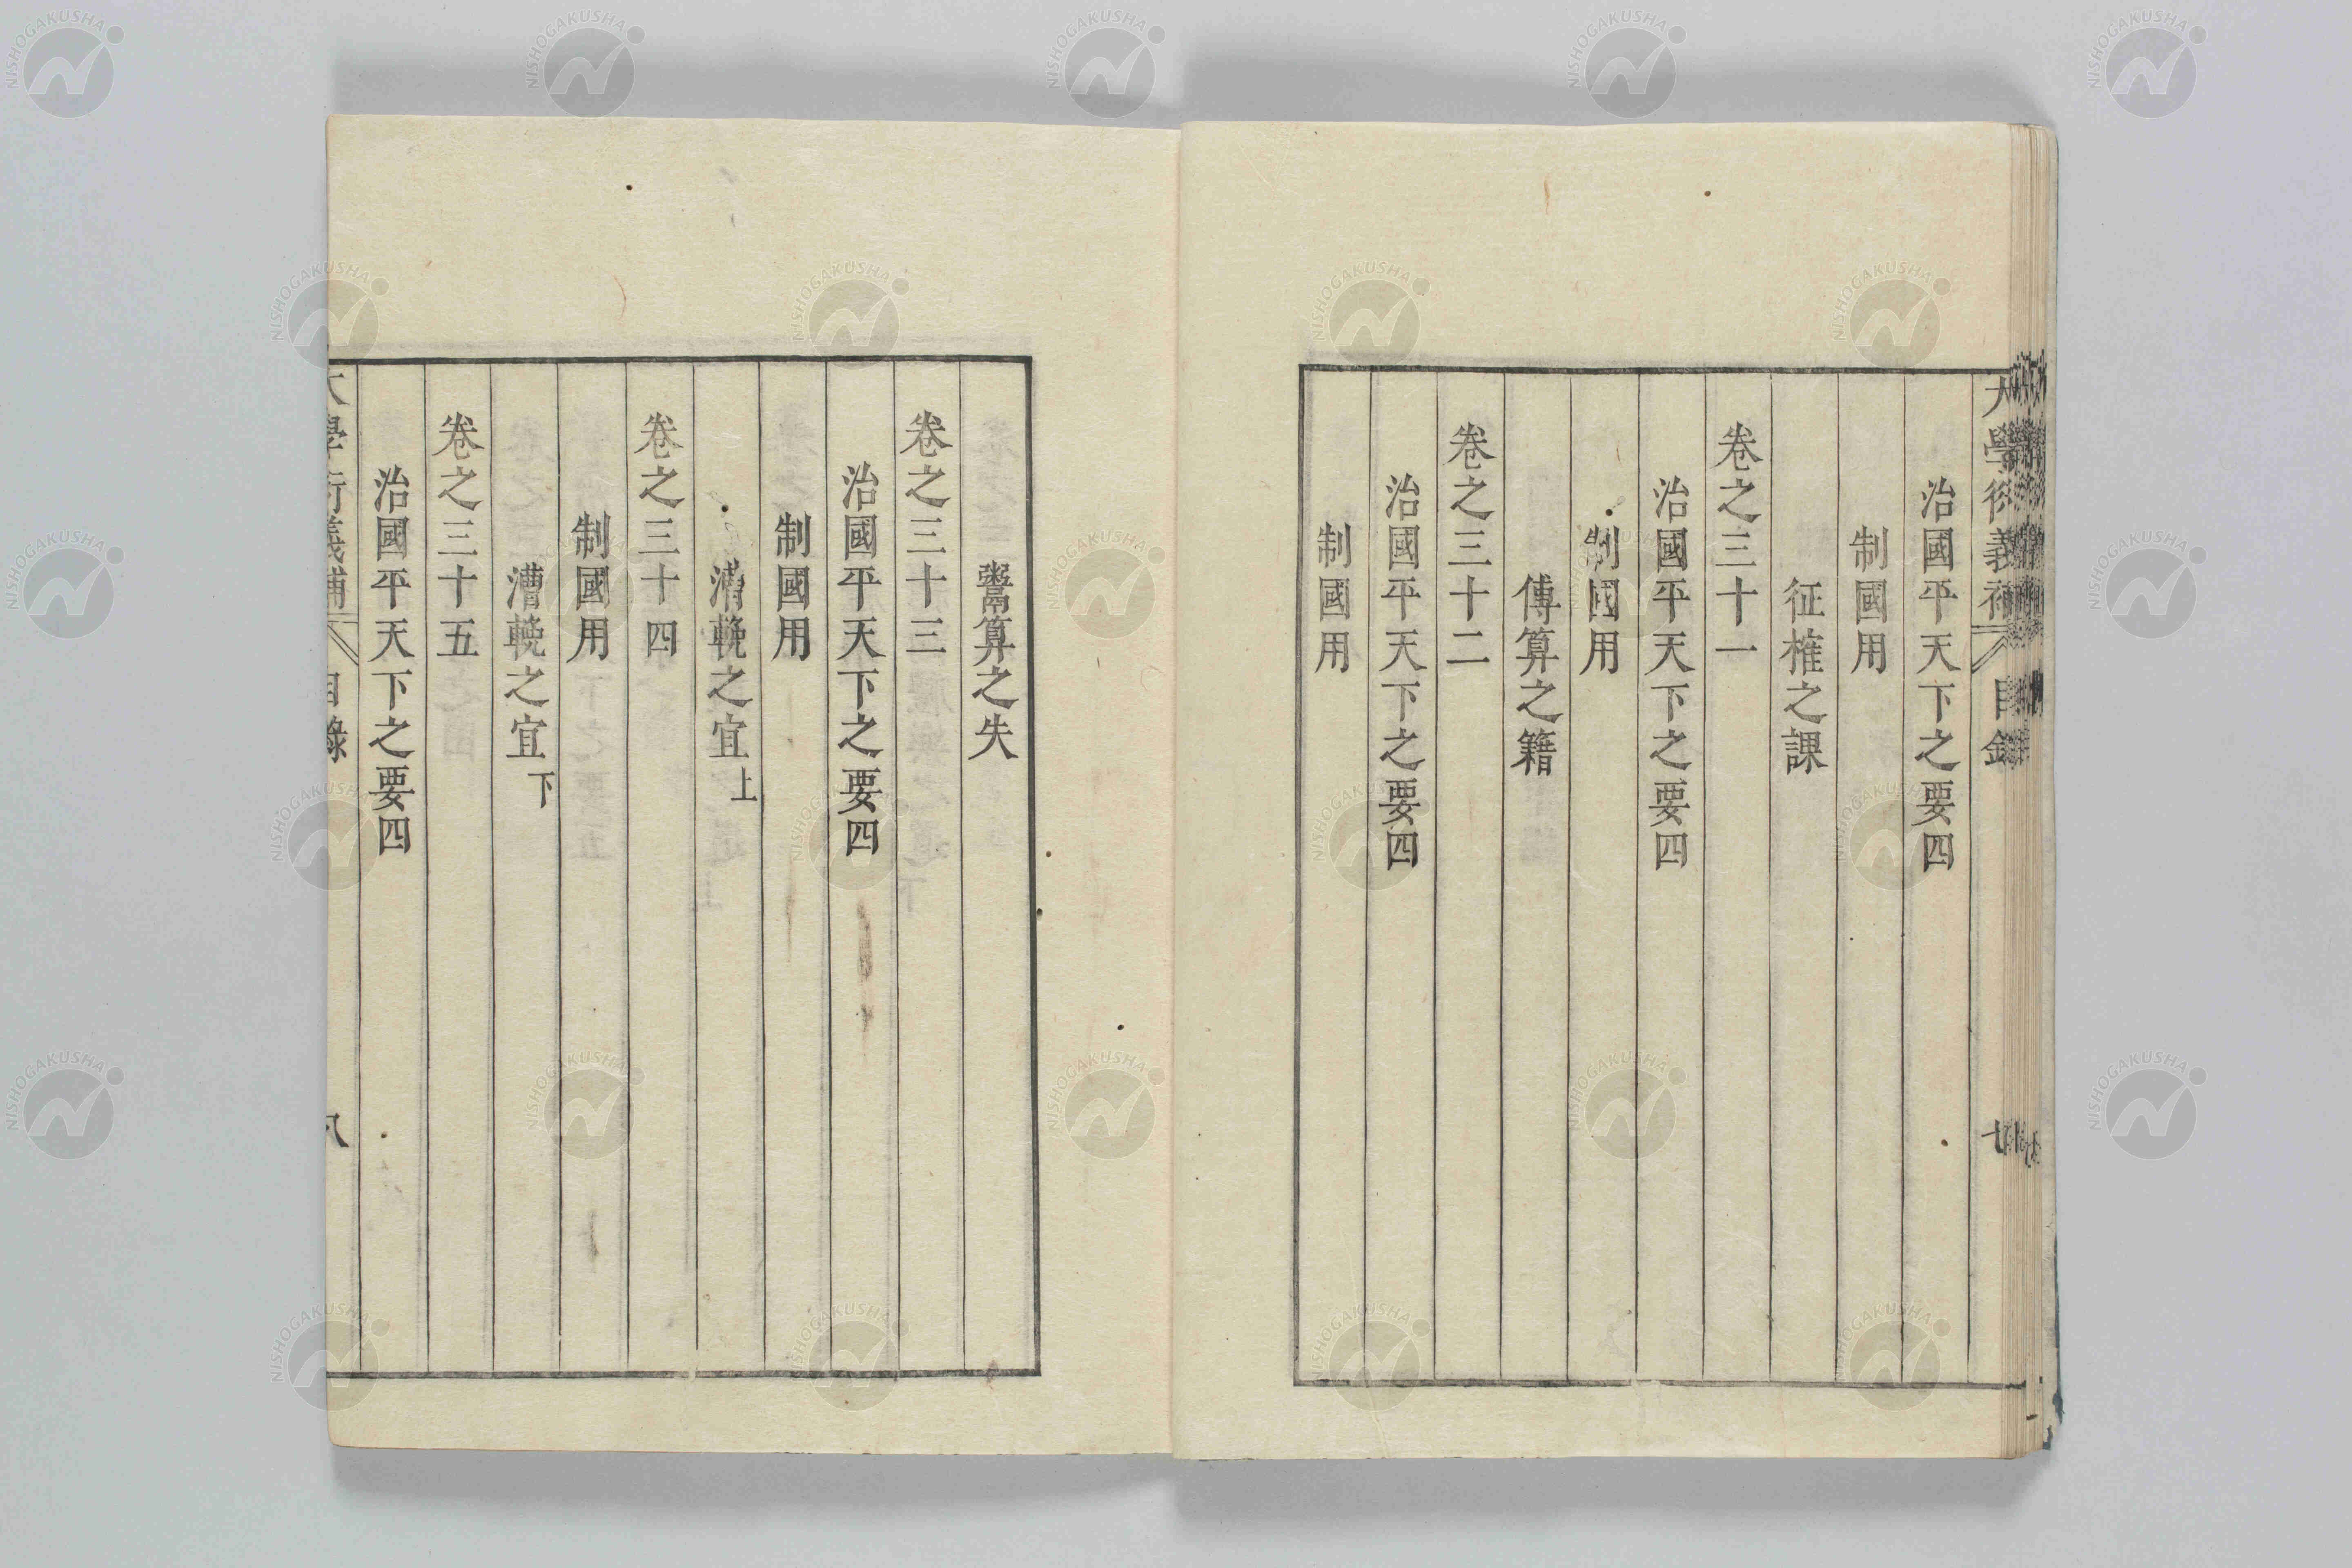 大學衍義補 目錄 七
治國平天下之要四
制國用
征榷之課
卷之三十一
治國平天下之要四
制國用
傅算之籍
卷之三十二
治國平天下之要四
制國用
鬻算之失
卷之三十三
治國平天下之要四
制國用
漕輓之宜上
卷之三十四
制國用
漕輓之宜下
卷之三十五
治國平天下之要四
大學衍義補 目錄 八
NISHOGAKUSHA